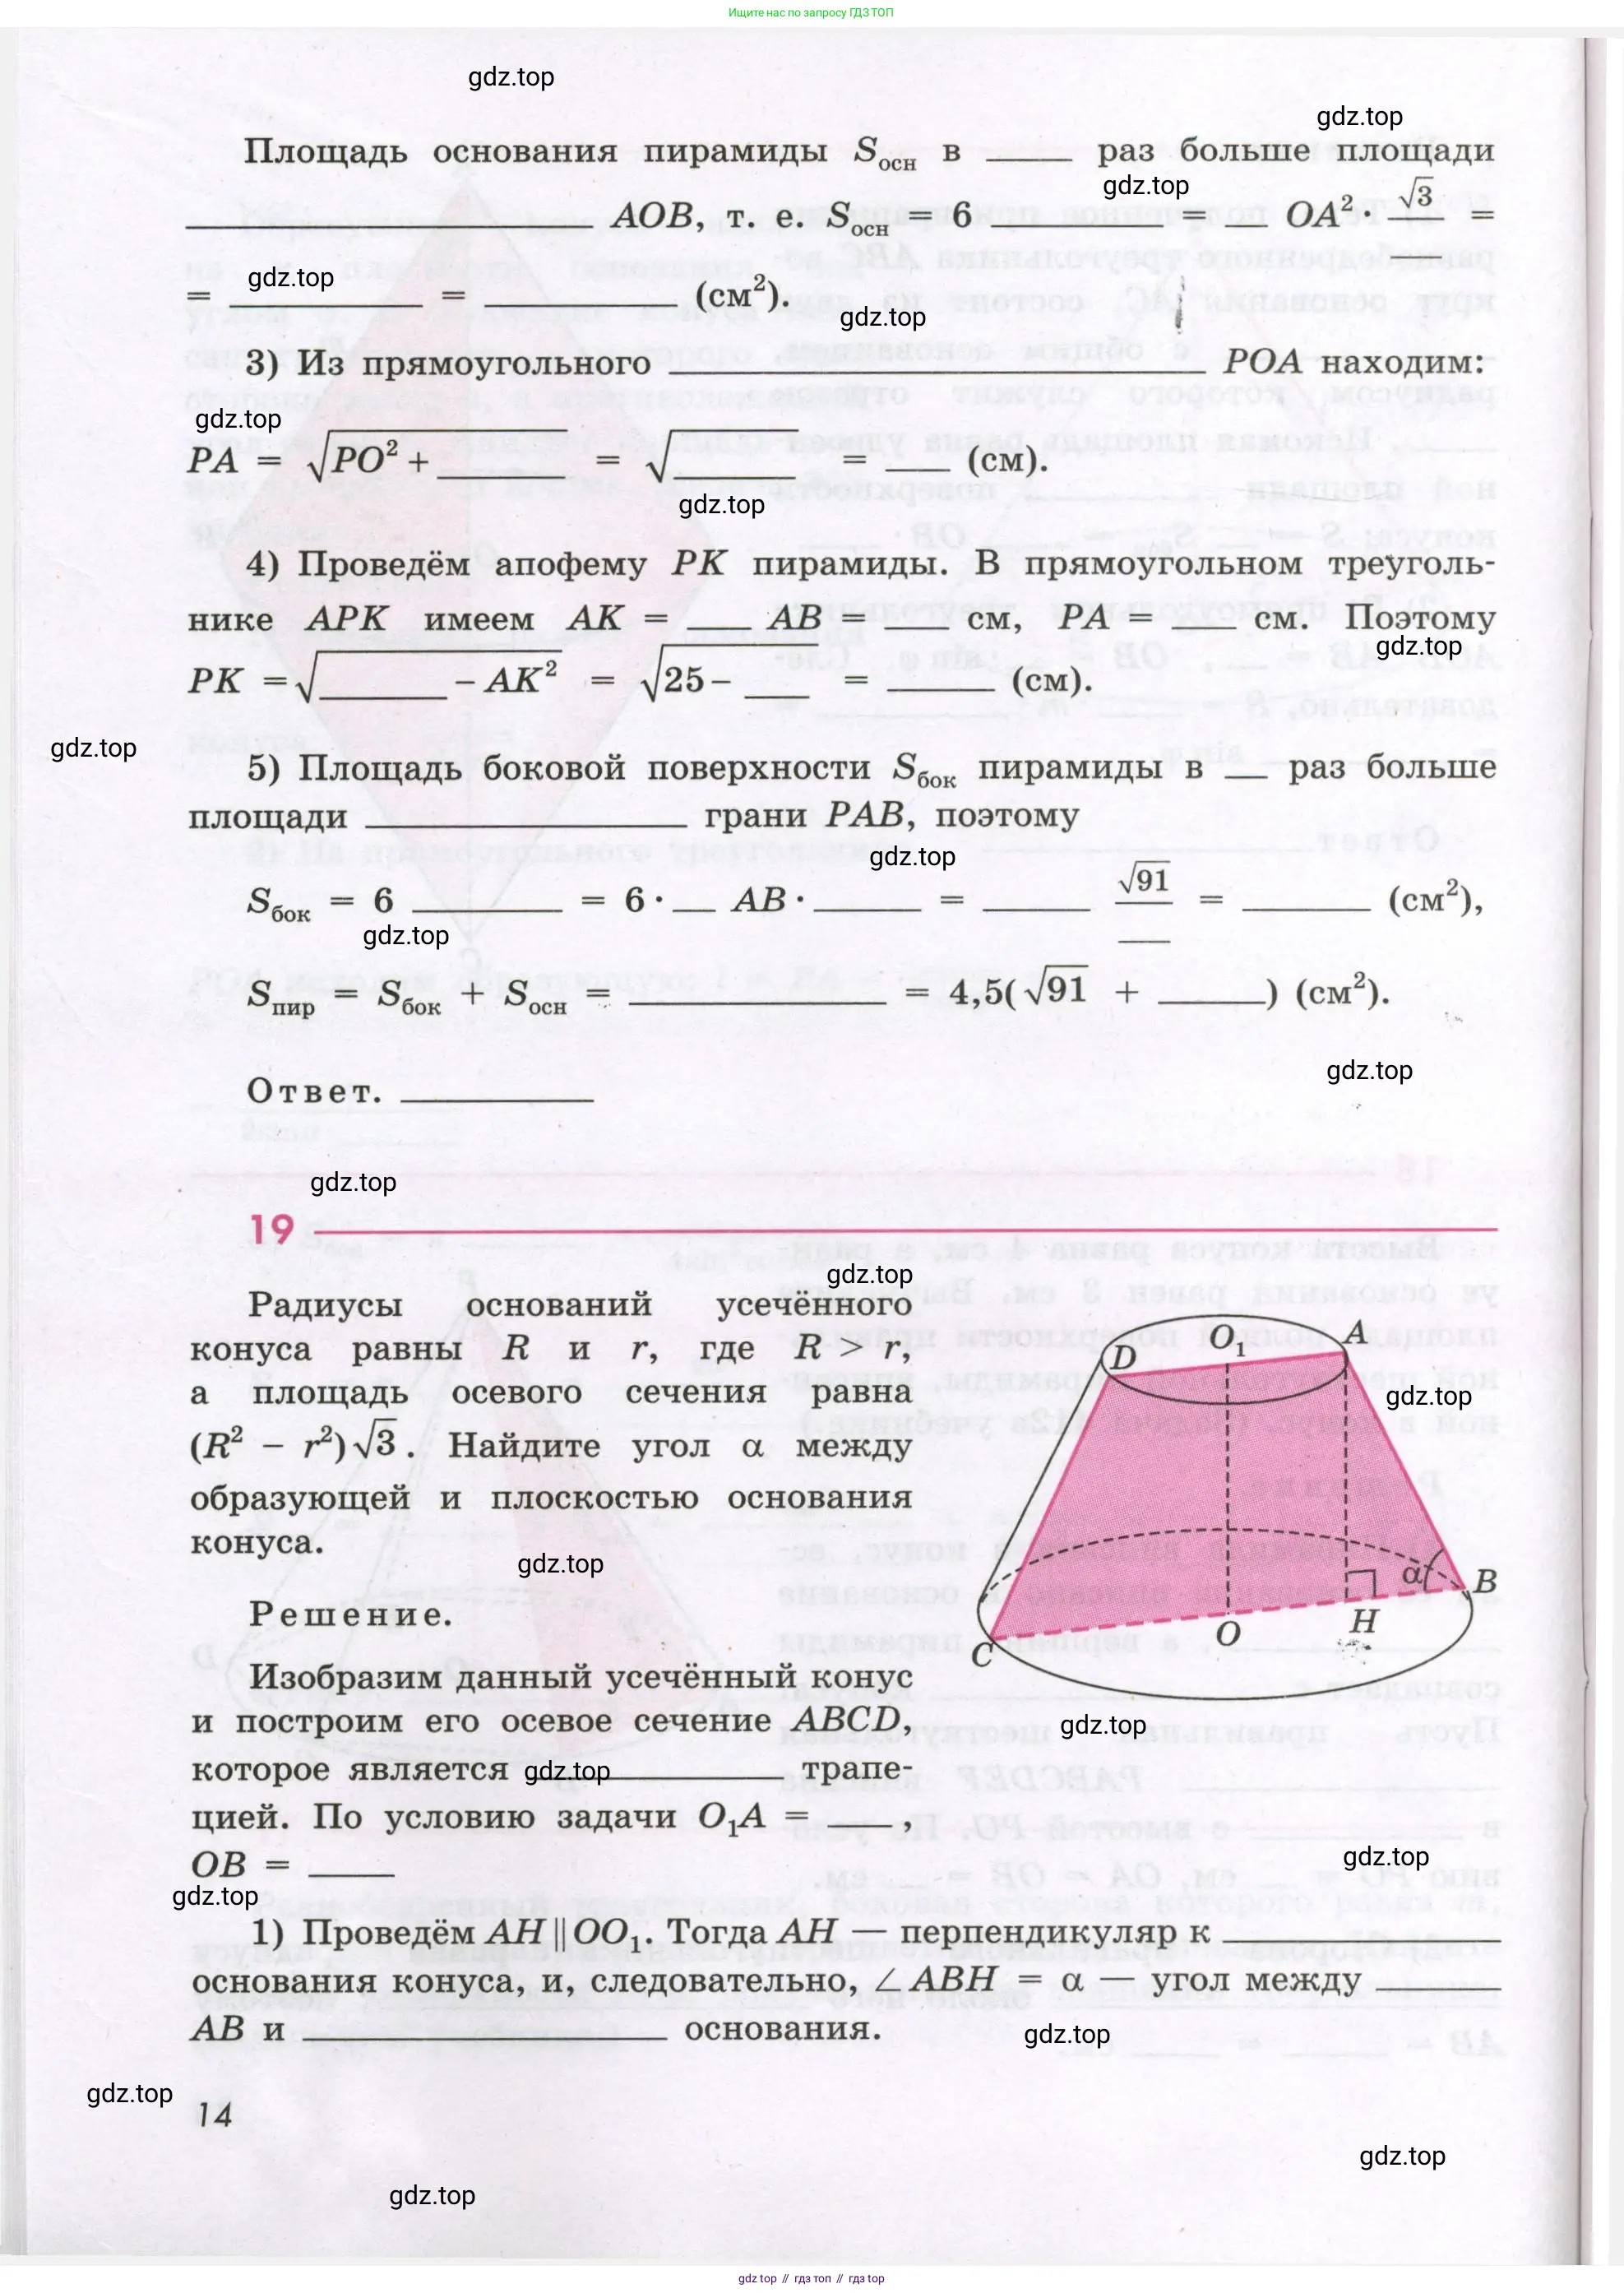 Ищите нас по запросу ГДЗ ТОП
gdz.top
gdz.top
Площадь основания пирамиды Sосн в ____ раз больше площади
gdz.top
____ AOB, т. е. Sосн = 6 ____ = __ OA² · √3/__ =
gdz.top
= ____ = ____ (см²).
gdz.top
3) Из прямоугольного ____ POA находим:
gdz.top
PA = √(PO² + ____) = √____ = ___ (см).
gdz.top
4) Проведём апофему PK пирамиды. В прямоугольном треуголь-
нике APK имеем AK = ___ AB = ___ см, PA = ___ см. Поэтому
gdz.top
PK = √(____ − AK²) = √(25 − ___) = ____ (см).
gdz.top
5) Площадь боковой поверхности Sбок пирамиды в __ раз больше
площади ____ грани PAB, поэтому
gdz.top
Sбок = 6 ____ = 6 · __ AB · ____ = ____ √91/__ = ____ (см²),
gdz.top
Sпир = Sбок + Sосн = ____ = 4,5(√91 + ____) (см²).
gdz.top
Ответ. ____
gdz.top
19
gdz.top
Радиусы оснований усечённого
конуса равны R и r, где R > r,
а площадь осевого сечения равна
(R² − r²)√3. Найдите угол α между
образующей и плоскостью основания
конуса.
gdz.top
Решение.
Изобразим данный усечённый конус
и построим его осевое сечение ABCD,
которое является gdz.top ____ трапе-
цией. По условию задачи O₁A = ___ ,
OB = ___
gdz.top
O₁
A
D
gdz.top
α
B
H
O
C
gdz.top
gdz.top
1) Проведём AH || OO₁. Тогда AH — перпендикуляр к ____
основания конуса, и, следовательно, ∠ABH = α — угол между ____
AB и ____ основания.
gdz.top
gdz.top
14
gdz.top
gdz.top
gdz.top // гдз топ // gdz.top